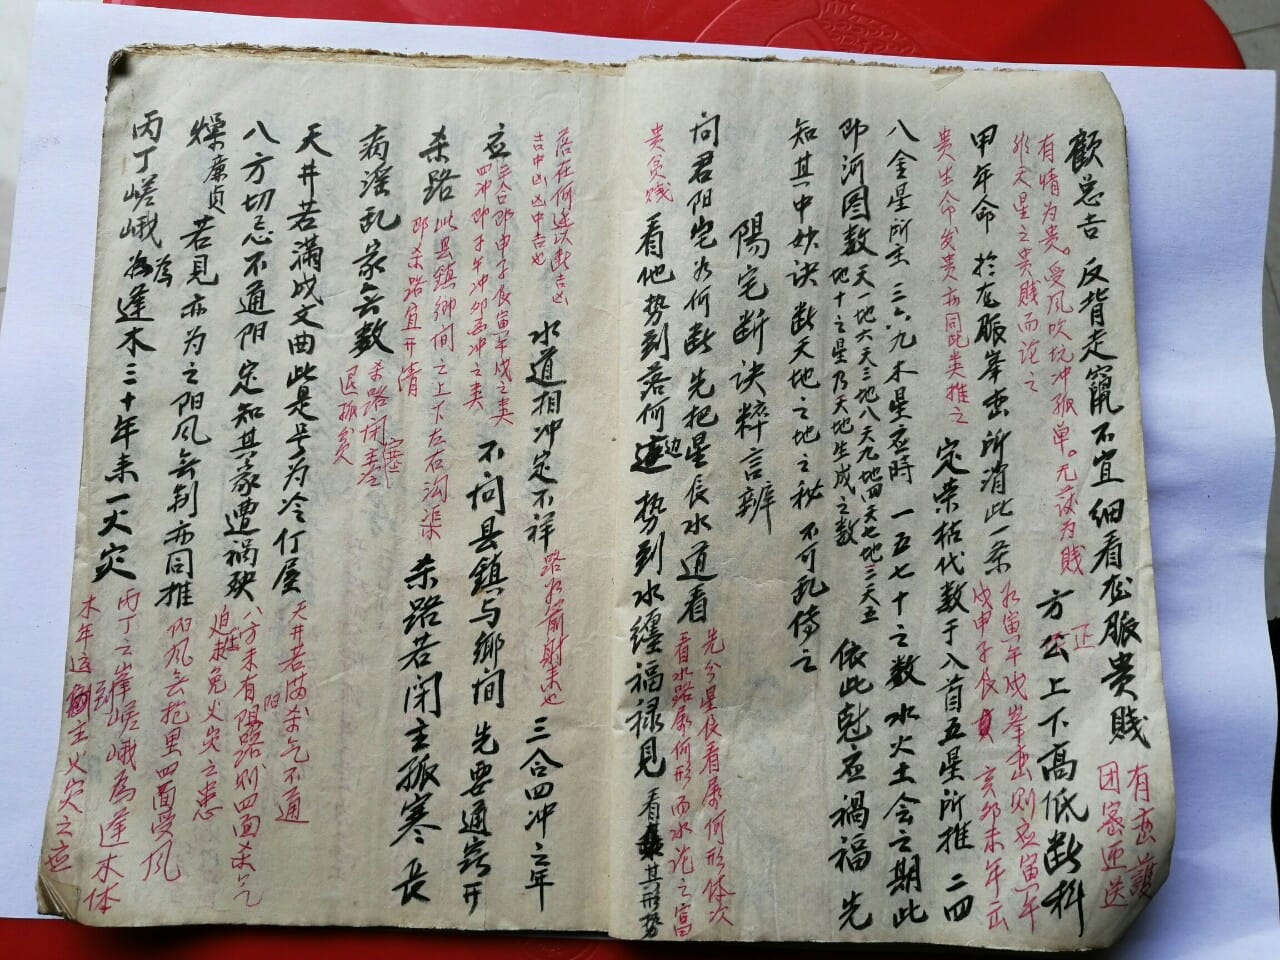 顧总吉 反背走竄不宜细看龙脉贵贱
有峦護
团密迎送
有情为贵。受风吹坑冲孤单。无䕶为贱
非天星之贵贱而论之
正
方公上下高低断科
甲年命 於龙脉峯峦所消此一条
如寅午戌峯峦出则应寅午
戌申子辰 亥卯未年出
贵生命发贵亦同此类推之
定荣枯代数于入首五星所推 二四
八金星所主 三六九木星应時 一五七十之数水火土会之期此
即河图数
天一地六天三地八天九地四天七地二天五
地十之星乃天地生成之数
依此尅应禍福 先
知其中妙诀断天地之地之秘 不可乱傳之
陽宅断诀粹言辨
问君阳宅如何断 先把星辰水道看
先分星辰看属何形体次
看水路属何形而水论之富
贵贫贱
看他势到落何边 势到水纏福禄見
看其形势
落在何边以断吉凶
吉中凶凶中吉也
水道相冲定不祥
路如箭射来也
三合四冲之年
应
三合即申子辰寅午戌之类
四冲即子午冲卯酉冲之类
不问县鎮与鄉间 先要通窍开
杀路
此县鎮鄉间之上下左右沟渠
即杀路宜开清
杀路若闭主孤寒 長
病淫乱家去数
杀路闭塞
居孤贫
天井若满成文曲此是号为冷仃屋
天井若满杀气不通
八方切忌不通阳 定知其家遭禍殃
八方未有阳路则四面杀气
迫来免火灾之患
燥廉貞若見亦为之阳风去制亦同推
阳风去抱里四面受风
丙丁嵯峨为逢木三十年来一火灾
丙丁之峰嵯峨為逢木体
木年运到主火灾之应